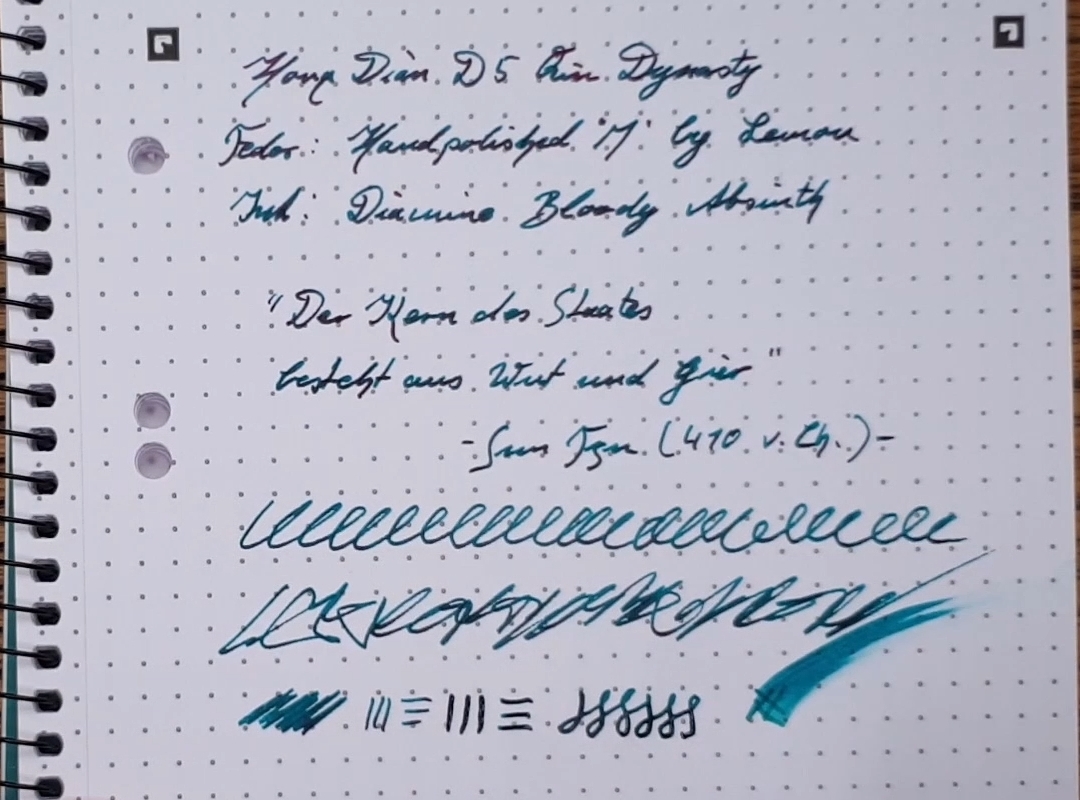 Hong Dian D5 Qin Dynasty
Feder: Handpolished "M" by Lemon
Ink: Diamine Bloody Absinth
"Der Kern des Staates
besteht aus Wut und Gier"
- Sun Tzu (470 v. Ch.) -